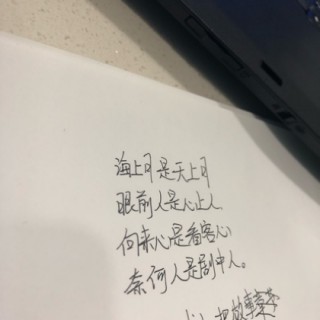 海上月是天上月
眼前人是心上人
向来心是看客心
奈何人是剧中人。